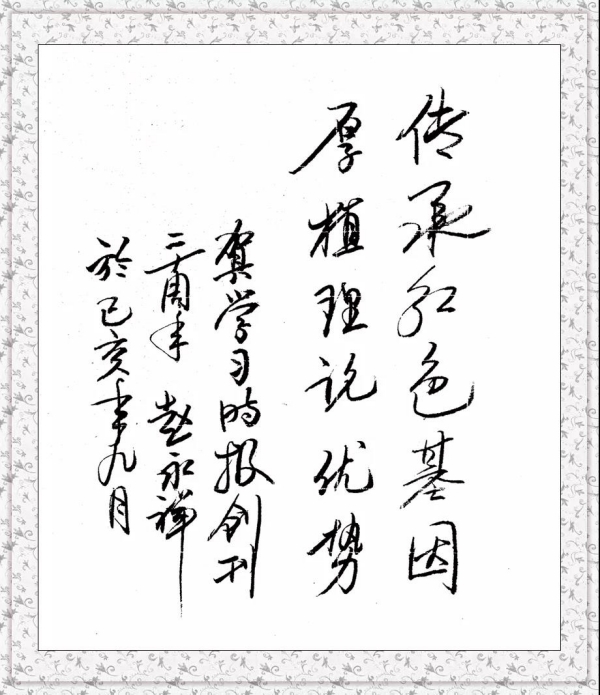 传承红色基因
厚植理论优势
贺学习时报创刊
二十周年 赵永祥
於己亥年九月